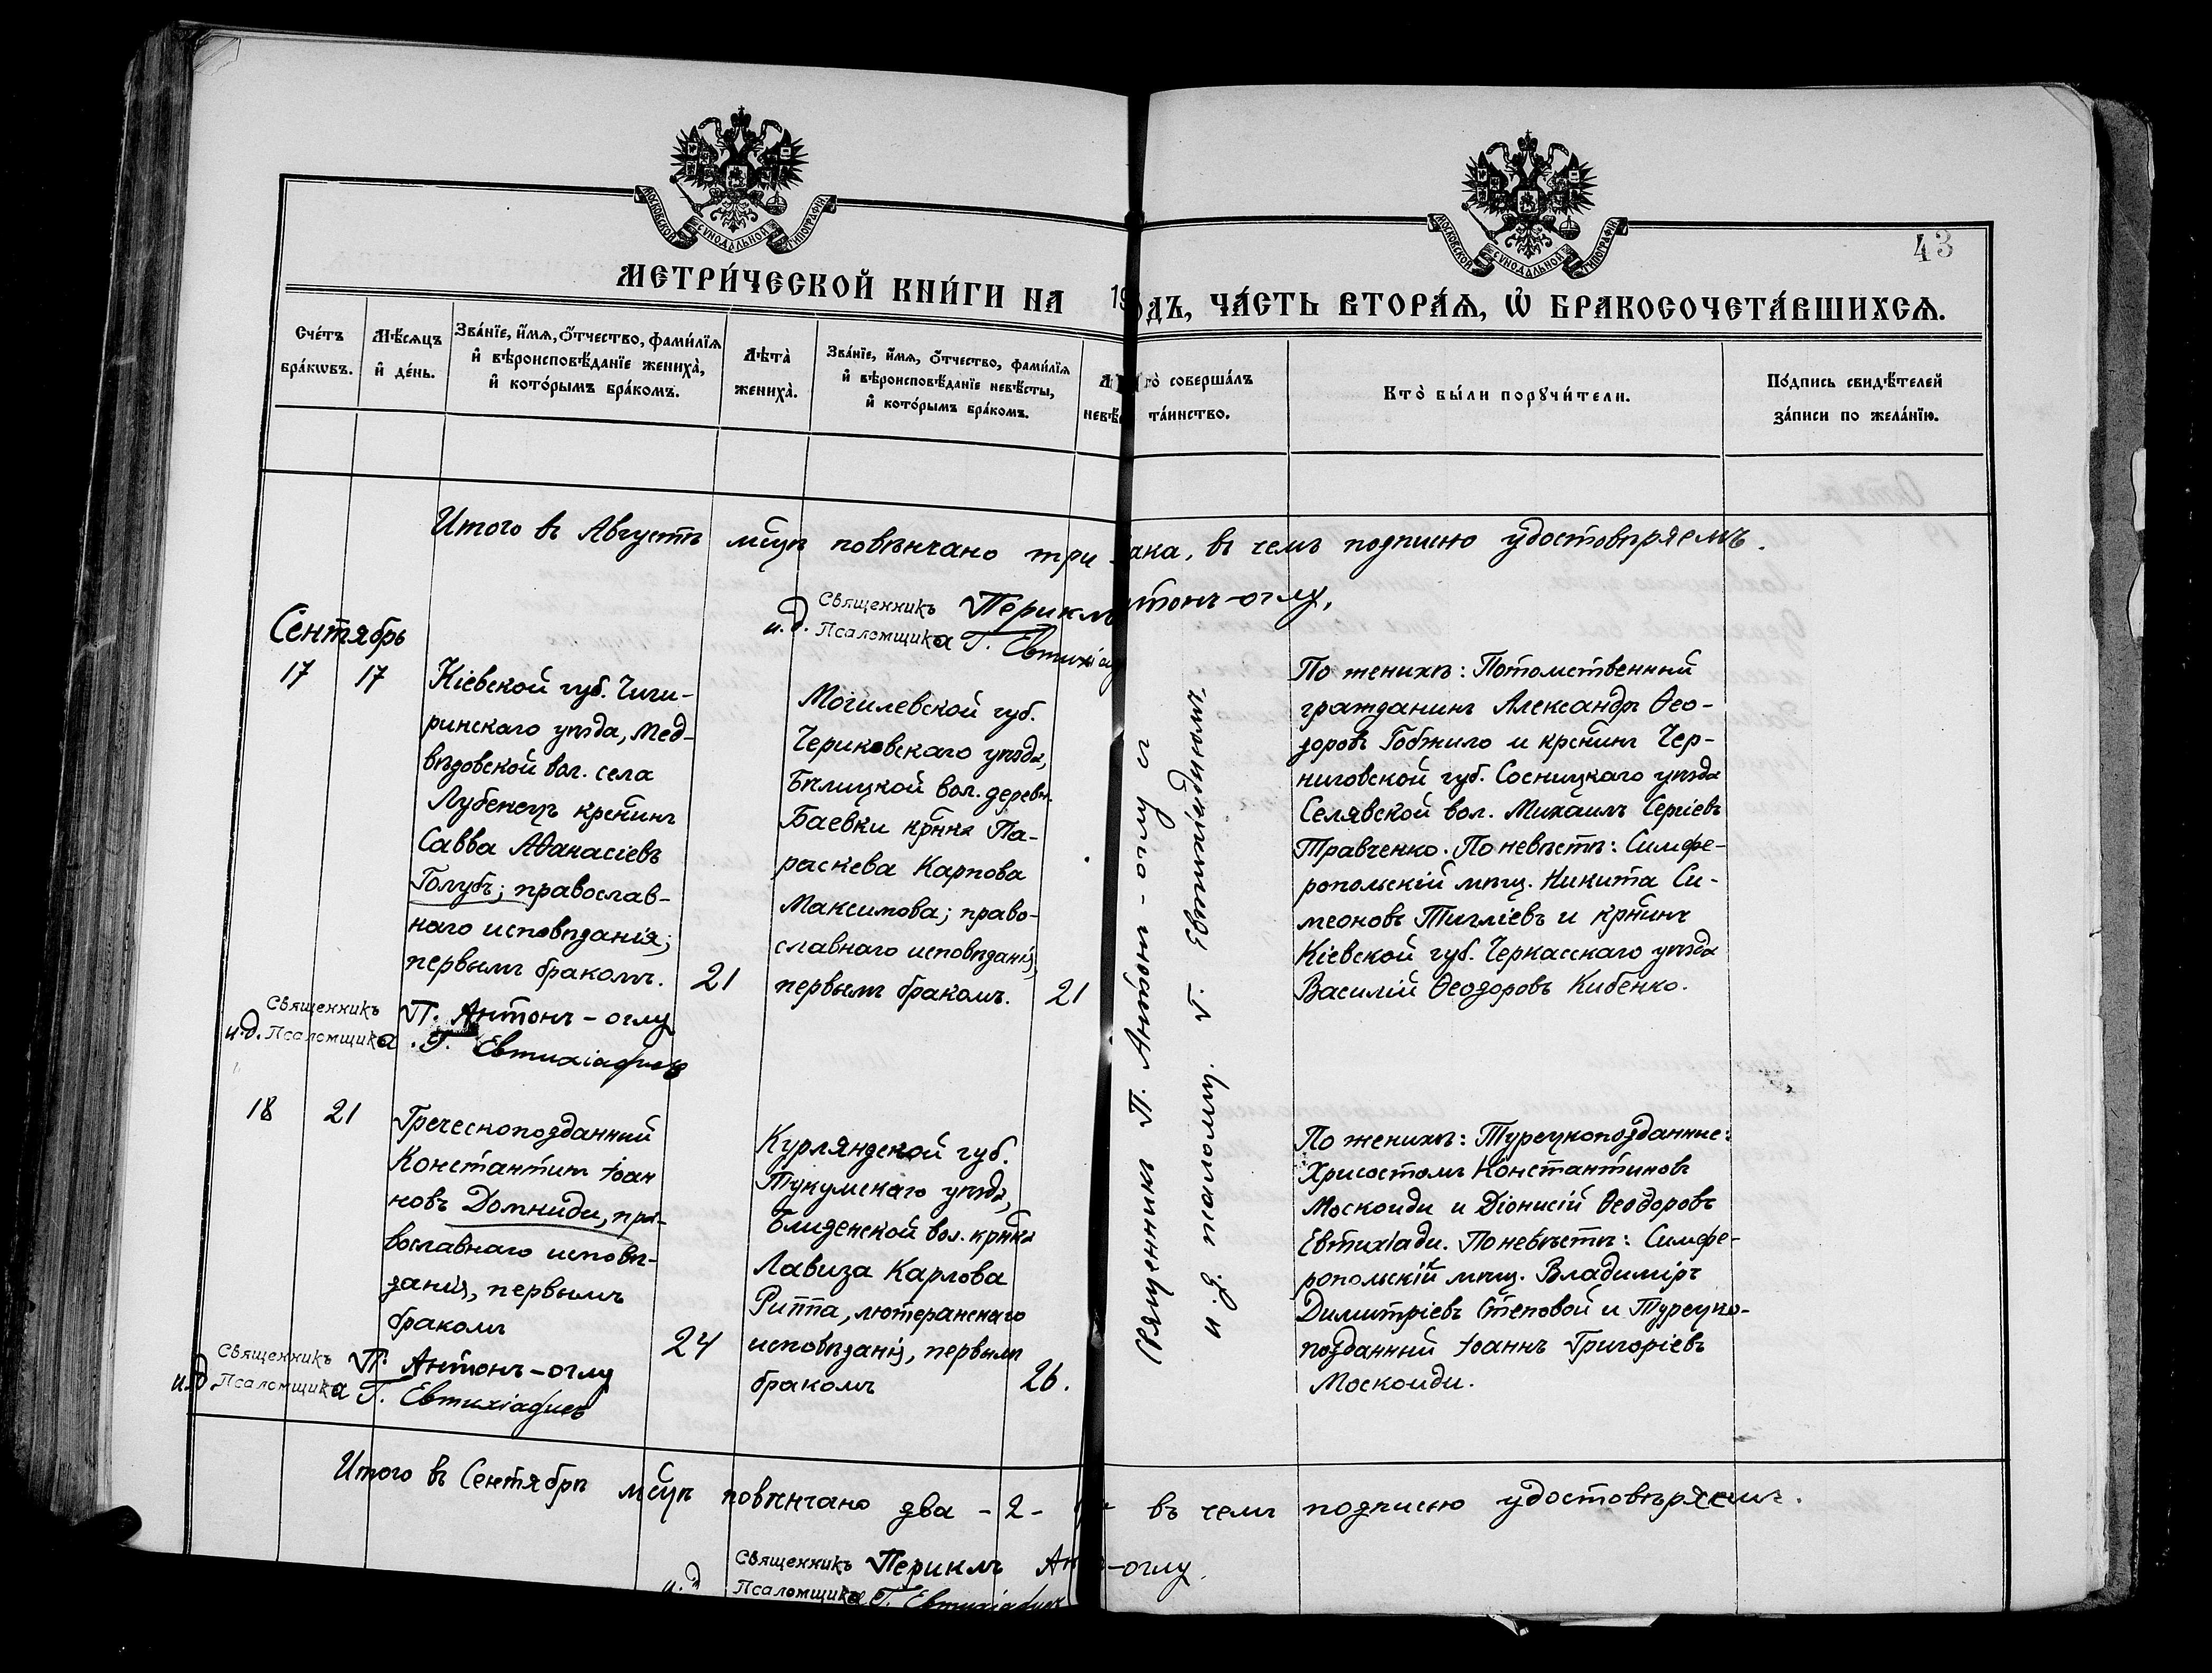 МОСКОВСКОЙ СѴНОДАЛЬНОЙ ТИПОГРАФІИ
МОСКОВСКОЙ СѴНОДАЛЬНОЙ ТИПОГРАФІИ
43
МЕТРИ́ЧЕСКОЙ КНИ́ГИ НА 19
ОДЪ, ЧА́СТЬ ВТОРА́Ѧ, Ѡ БРАКОСОЧЕТА́ВШИХСѦ.
Сче́тъ
бра́кѡвъ.
Мѣ́сѧцъ
и҆ де́нь.
Зва́нїе, и҆́мѧ, ѻ҆́тчество, фами́лїѧ
и҆ вѣроисповѣ́данїе жениха̀,
и҆ кото́рымъ бра́комъ.
Лѣта̀
жениха̀.
Зва́нїе, и҆́мѧ, ѻ҆́тчество, фами́лїѧ
и҆ вѣроисповѣ́данїе невѣ́сты,
и҆ кото́рымъ бра́комъ.
Л
невѣ́
то̀ соверша́лъ
та́инство.
Кто̀ бы́ли порꙋчи́тели.
По́дпись свидѣ́телей
за́писи по жела́нїю.
Итого въ Августѣ мѣсцѣ повѣнчано три
ака, въ чемъ подписью удостовѣряемъ.
Священникъ Перикл
нтонъ-оглу,
и.д. Псаломщика Г. Евтихіад
Сентябрь
17
17
Кіевской губ. Чиги-
ринскаго уѣзда, Мед-
вѣдовской вол. села
Лубенецъ крснинъ
Савва Аѳанасіевъ
Голубъ; православ-
наго исповѣданія;
первымъ бракомъ.
21
Могилевской губ.
Чериковскаго уѣзда,
Бѣлицкой вол. деревн.
Баевки крнка Па-
раскева Карпова
Максимова; право-
славнаго исповѣданія,
первымъ бракомъ.
21
Священникъ П. Антонъ-оглу и
и.д. псаломщ. Г. Евтихіадисомъ.
По женихѣ: Потомственный
гражданинъ Александръ Ѳео-
доровъ Гобжило и крснинъ Чер-
ниговской губ. Сосницкаго уѣзда
Селявской вол. Михаилъ Сергіевъ
Травченко. По невѣстѣ: Симфе-
ропольскій мѣщ. Никита Си-
меоновъ Тигліевъ и крнинъ
Кіевской губ. Черкасскаго уѣзда
Василій Ѳеодоровъ Кибенко.
Священникъ П. Антонъ-оглу
и.д. Псаломщика Г. Евтихіадисъ
18
21
Греческоподданный
Константинъ Іоан
новъ Домниди, пра-
вославнаго исповѣ-
данія, первымъ
бракомъ
24
Курляндской губ.
Туккумскаго уѣзда,
Блиденской вол. крнка
Лавиза Карлова
Риппа, лютеранскаго
исповѣданія, первымъ
бракомъ
26.
По женихѣ: Турецкоподданные:
Хрисостомъ Константиновъ
Москоиди и Діонисій Ѳеодоровъ
Евтихіади. По невѣстѣ: Симфе-
ропольскій мѣщ. Владиміръ
Димитріевъ Степовой и Турецко-
подданный Іоаннъ Григоріевъ
Москоиди.
Священникъ П. Антонъ-оглу
и.д. Псаломщика Г. Евтихіадисъ
Итого въ Сентябрѣ мѣсцѣ повѣнчано два -2-
въ чемъ подписью удостовѣряемъ.
Священникъ Периклъ Ант
-оглу.
и.д. Псаломщика Г. Евтихіадисъ